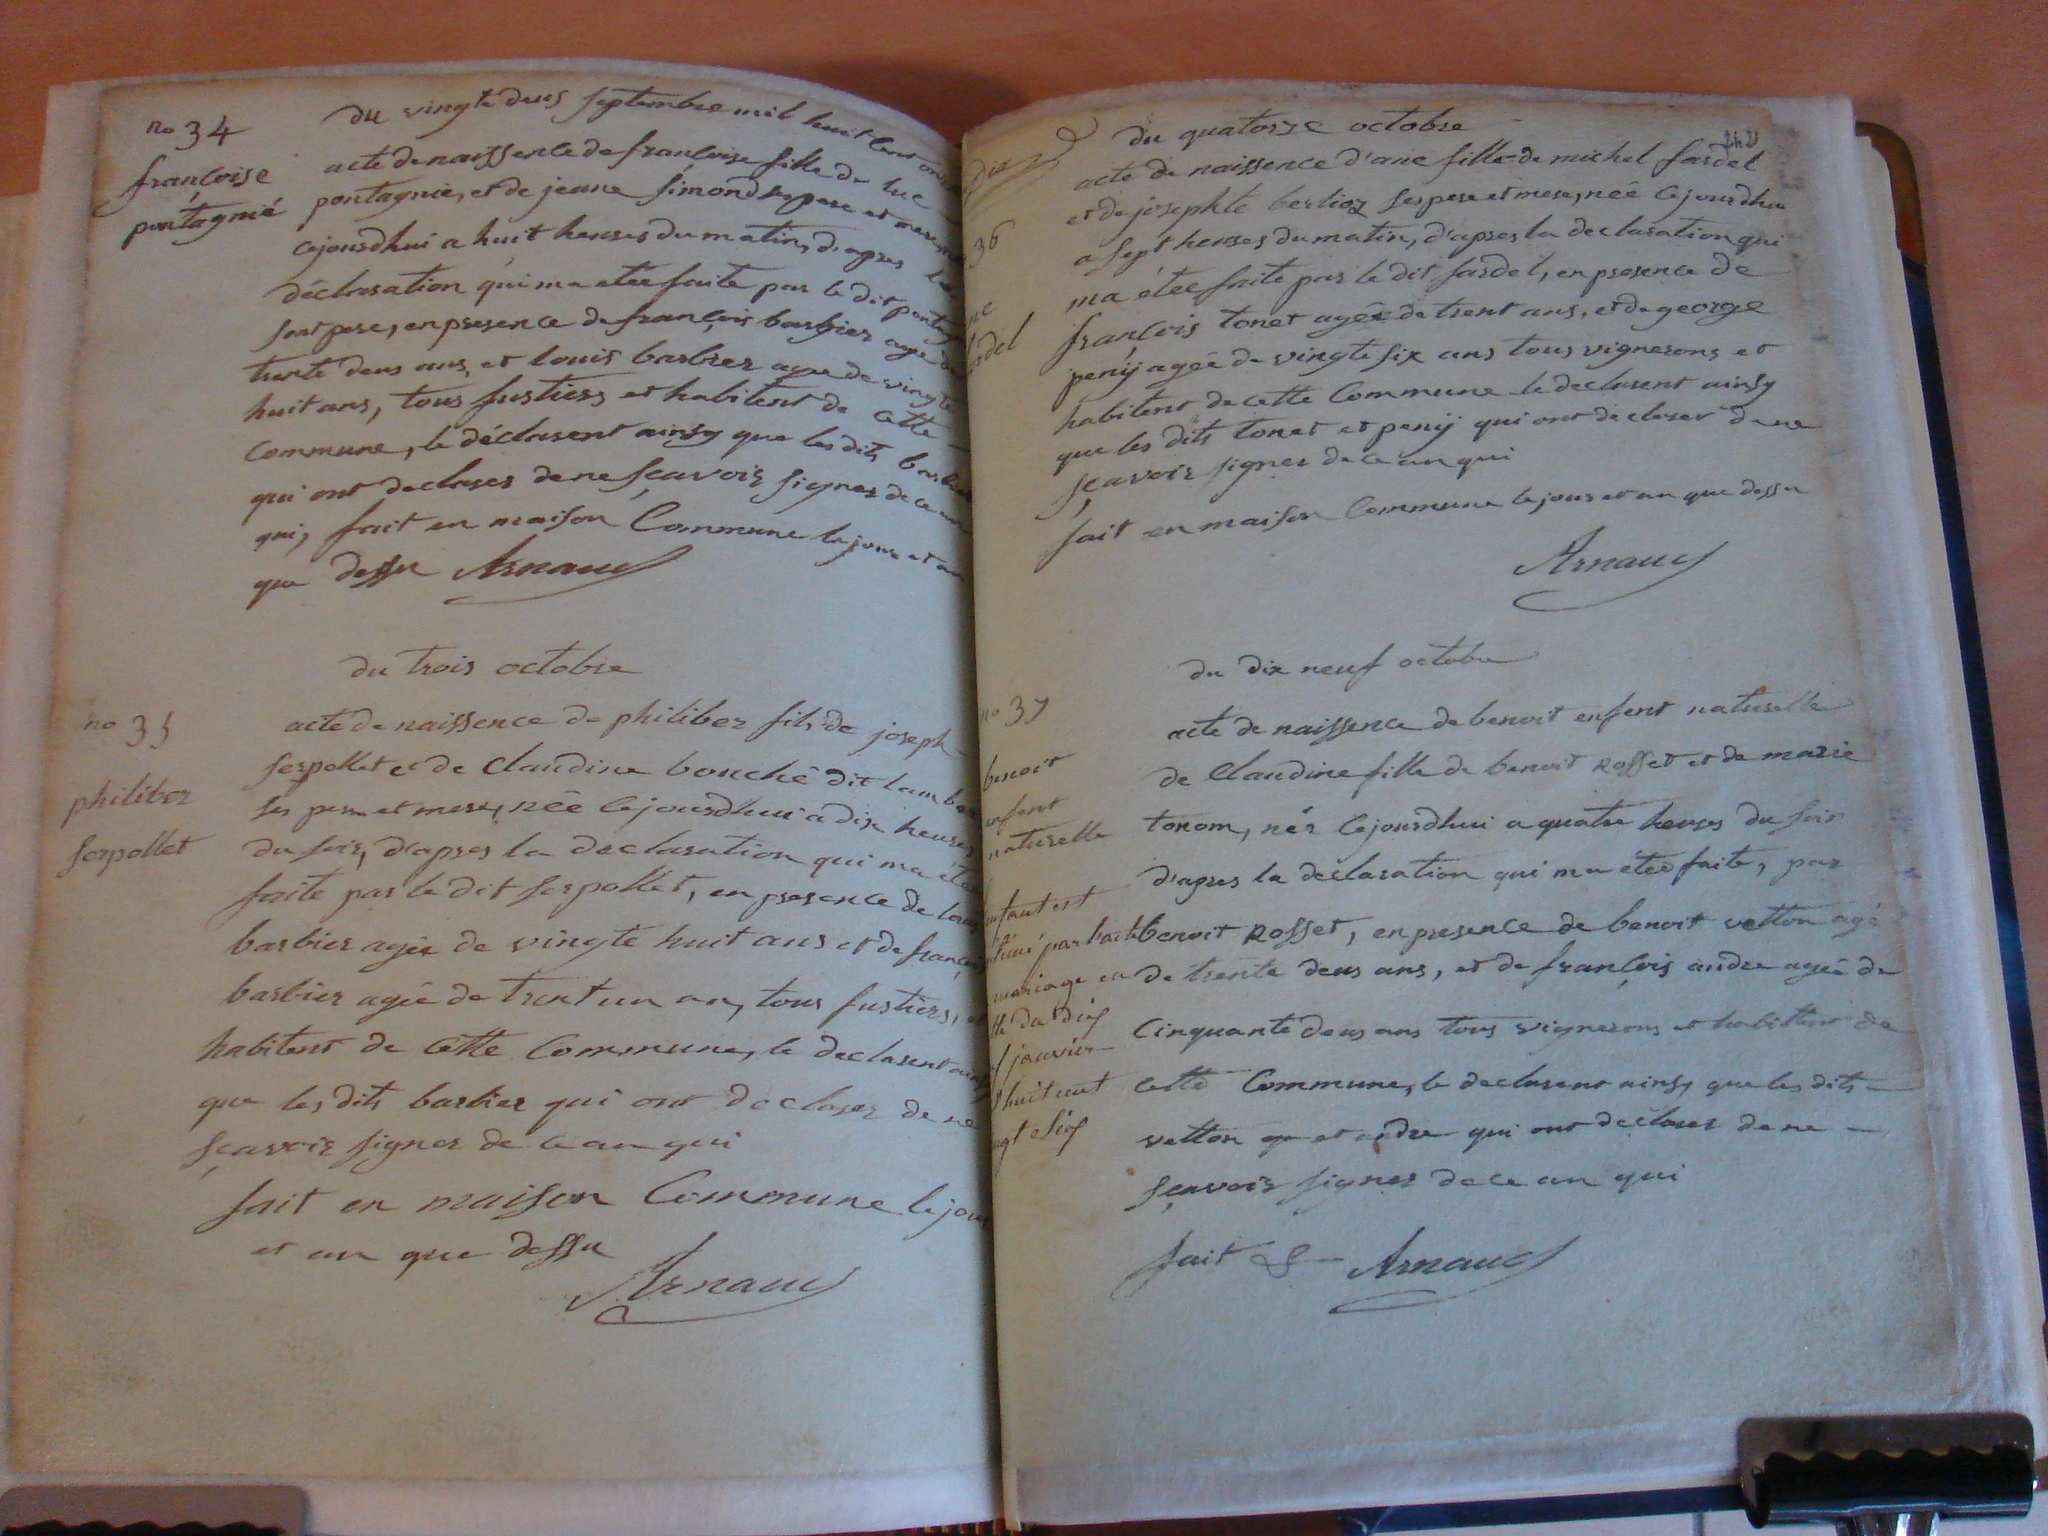 no 34
françoise
pontagnié
du vingte deus septembre mil huit cent
acte de naissence de françoise fille de luc
pontagnie, et de jeane simond ses pere et mere,
cejourdhui a huit heures du matin, d'apres la
déclaration qui ma etee faite par le dit
sont pere, en presence de françois barbier agee de
trente deus ans, et louis barbier agee de vingte
huit ans, tous fustiers et habitent de cette
Commune, le déclarent ainsy que les dits
qui ont declarer de ne sçavoir signer de ce an
qui, fait en maison Commune le jour et an
que dessu Arnaud
no 35
philiber
serpollet
du trois octobre
acte de naissence de philiber fils de joseph
serpollet et de Claudine bouché dit
ses pere et mere, née cejourdhui a dix heures
du soir, d'apres la declaration qui ma
faite par le dit serpollet, en presence de
barbier agée de vingte huit ans et de
barbier agée de trent un an, tous fustiers,
habitent de cette Commune, le declarent
que les dits barbier qui ont declarer de ne
sçavoir signer de ce an qui
fait en maison Commune le jour
et an que dessu
Arnaud
du quatorze octobre
36
acte de naissence d'une fille de michel fardel
et de josephte berlioz ses pere et mere, née cejourdhui
a sept heures du matin, d'apres la declaration qui
ma étee faite par le dit fardel, en presence de
françois tonet agée de trent ans, et de george
penij agée de vingte six ans tous vignerons et
habitent de cette Commune le declarent ainsy
que les dits tonet et penij qui ont declarer de ne
sçavoir signer de ce an qui
fait en maison Commune le jour et an que dessu
Arnaud
du dix neuf octobre
no 37
benoit
enfent
naturelle
acte de naissence de benoit enfent naturelle
de Claudine fille de benoit rosset et de marie
tonom, nér cejourdhui a quatre heures du soir
d'apres la declaration qui ma étee faite, par
benoit rosset, en presence de benoit vetton agé
de trente deus ans, et de françois andre agée de
Cinquante deus ans tous vignerons et habittent de
cette Commune, le declarent ainsy que les dits
vetton et andre qui ont declarer de ne
sçavoir signer de ce an qui
fait & Arnaud
est
par
mariage en
du dix
janvier
huit cent